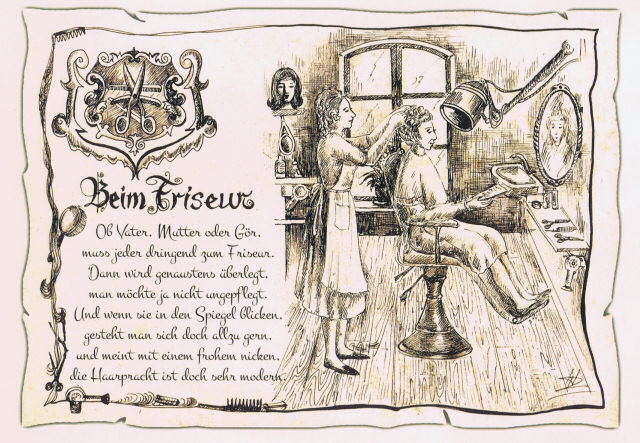 Beim Friseur
Ob Vater, Mutter oder Gör,
muss jeder dringend zum Friseur.
Dann wird genaustens überlegt,
man möchte ja nicht ungepflegt.
Und wenn sie in den Spiegel blicken,
gesteht man sich doch allzu gern,
und meint mit einem frohem nicken,
die Haarpracht ist doch sehr modern.